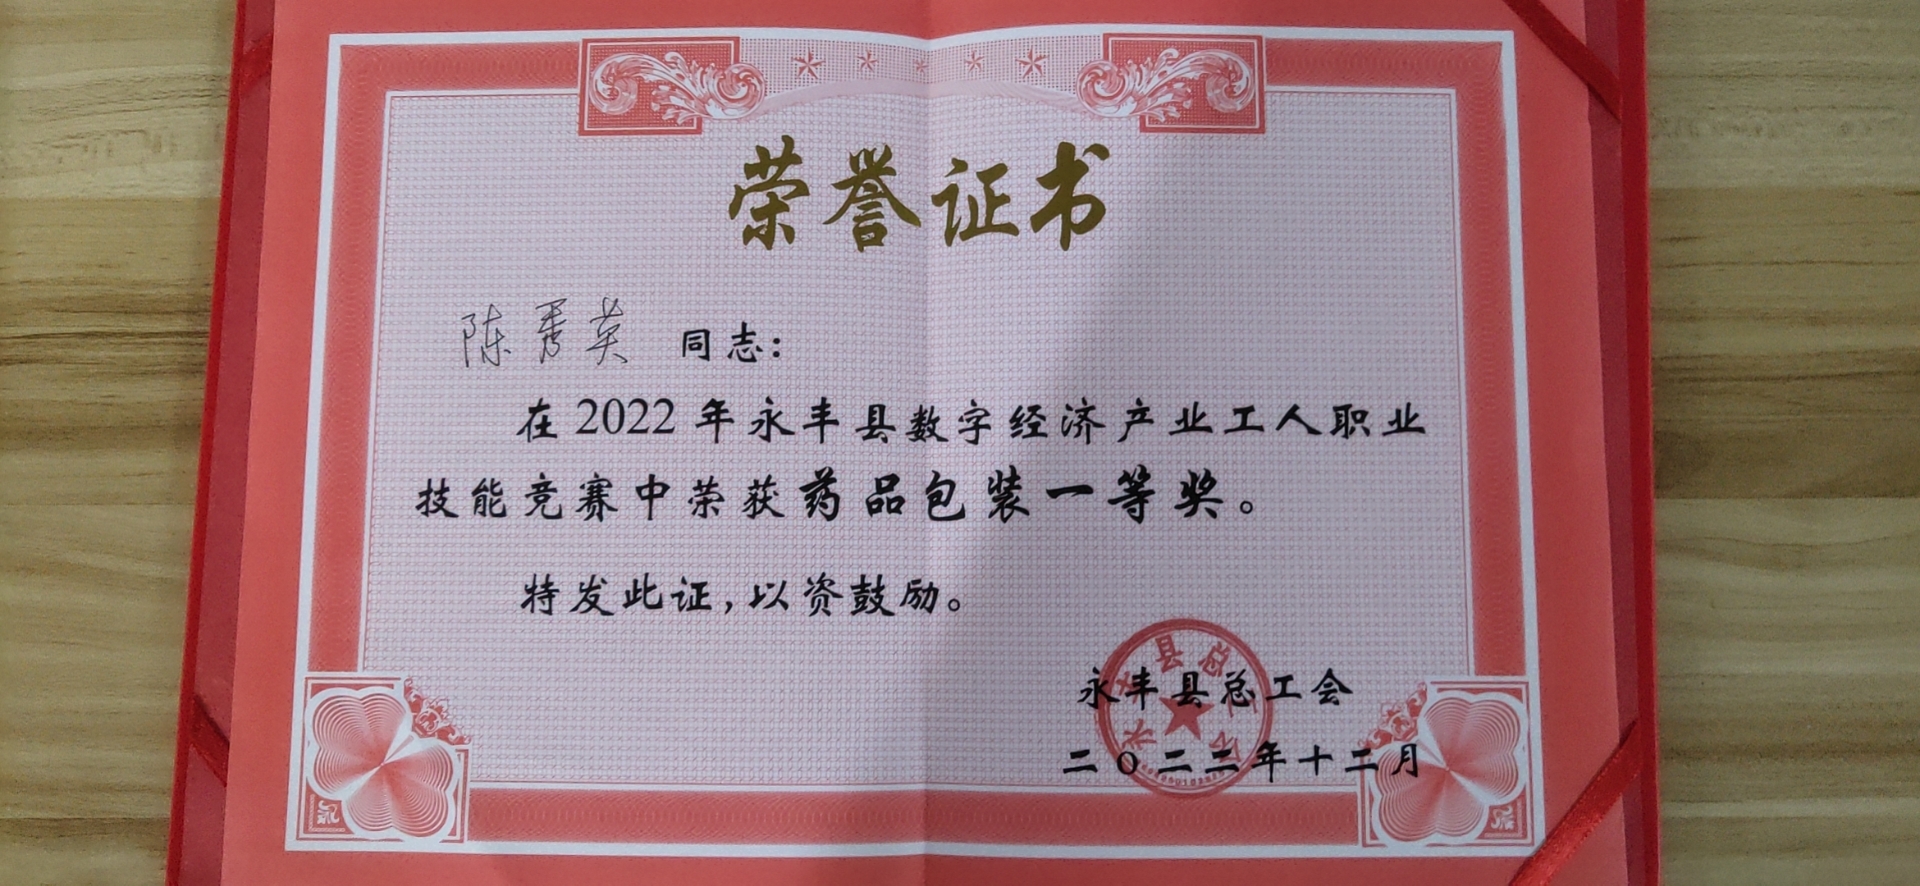 荣誉证书
陈秀英 同志：
在2022年永丰县数字经济产业工人职业
技能竞赛中荣获药品包装一等奖。
特发此证，以资鼓励。
永丰县总工会
二〇二二年十二月